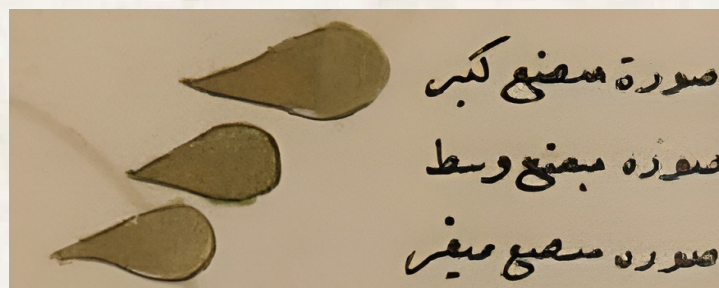 صورة مبضع كبير
صوره مبضع وسط
صوره مبضع صغير